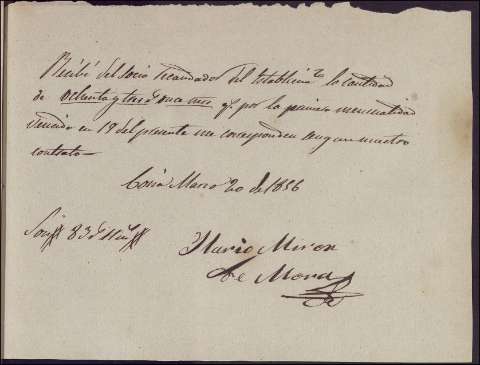 Recibí del socio recaudador del establecim.to la cantidad
de ochenta y tres q.e por la primera mensualidad
vencida en 19 del presente me corresponden segun nuestro
contrato
Coria Marzo 20 de 1856
Son 83
Ilario Miron
de Mora